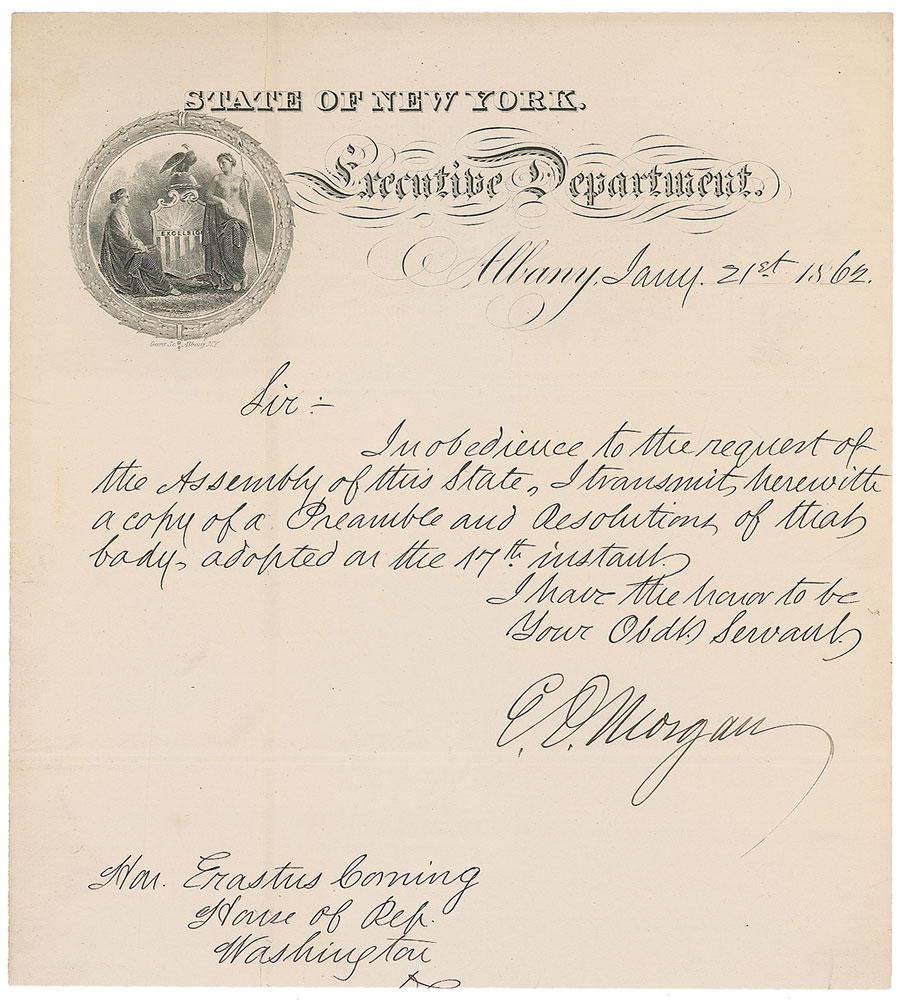 STATE OF NEW YORK.
Executive Department.
EXCELSIOR
Albany, Jany. 21st 1862.
Gavit Sc. Albany N.Y.
Sir :-
In obedience to the request of
the Assembly of this State, I transmit, herewith
a copy of a Preamble and Resolutions, of that
body, adopted on the 17th instant.
I have the honor to be
Your Obdt. Servant,
E. D. Morgan
Hon. Erastus Corning
House of Rep.
Washington